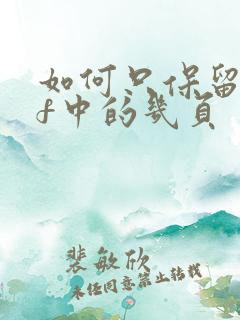 如何只保留
f中的幾頁
裴敏欣
未经同意禁止转载